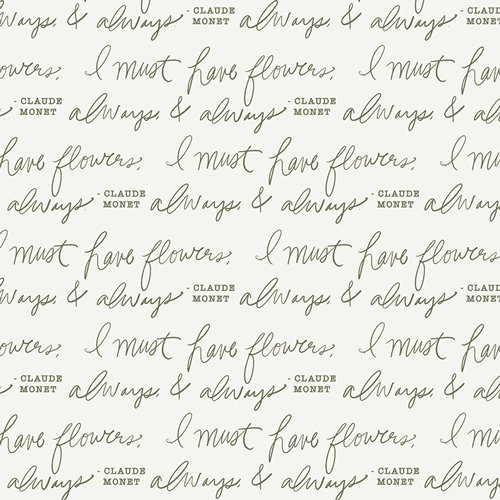 ways, & always - CLAUDE MONET always, & always - CLAUDE MONET
owers, I must have flowers, I must
- CLAUDE MONET always, & always - CLAUDE MONET always, &
have flowers, I must have flowers, I must
always - CLAUDE MONET always, & always - CLAUDE MONET always,
I must have flowers, I must have flowers,
ways, & always - CLAUDE MONET always, & always - CLAUDE MONET
owers, I must have flowers, I must
- CLAUDE MONET always, & always - CLAUDE MONET always, &
have flowers, I must have flowers, I must
always - CLAUDE MONET always, & always - CLAUDE MONET always,